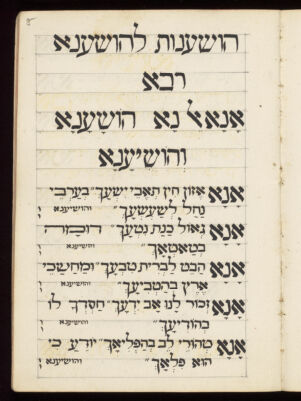 הושענות להושענא
רבא
אָנָא אֵל נָא הושָענָא
והושיענָא
אָנָא אֱזוֹן חִין תְּאֵבֵי יִשְׁעָךְ בְּעַרְבֵי
נַחַל לְשַׁעְשְׁעָךְ והושיענא
אָנָא גְּאוֹל כַּנַּת נִטְעָךְ דומה
בְּטַאטְאָךְ והושיענא
אָנָא הַבֵּט לַבְּרִית טִבְעָךְ וּמַחֲשַׁכֵּי
אֶרֶץ בְּהַטְבִּיעָךְ והושיענא
אָנָא זְכוֹר לָנוּ אָב יִדְעָךְ חַסְדְּךָ לוֹ
בְּהוֹדִיעָךְ והושיענא
אָנָא טְהוֹרֵי לֵב בְּהַפְלִיאָךְ יִוָּדַע כִּי
הוּא פִלְאָךְ והושיענא